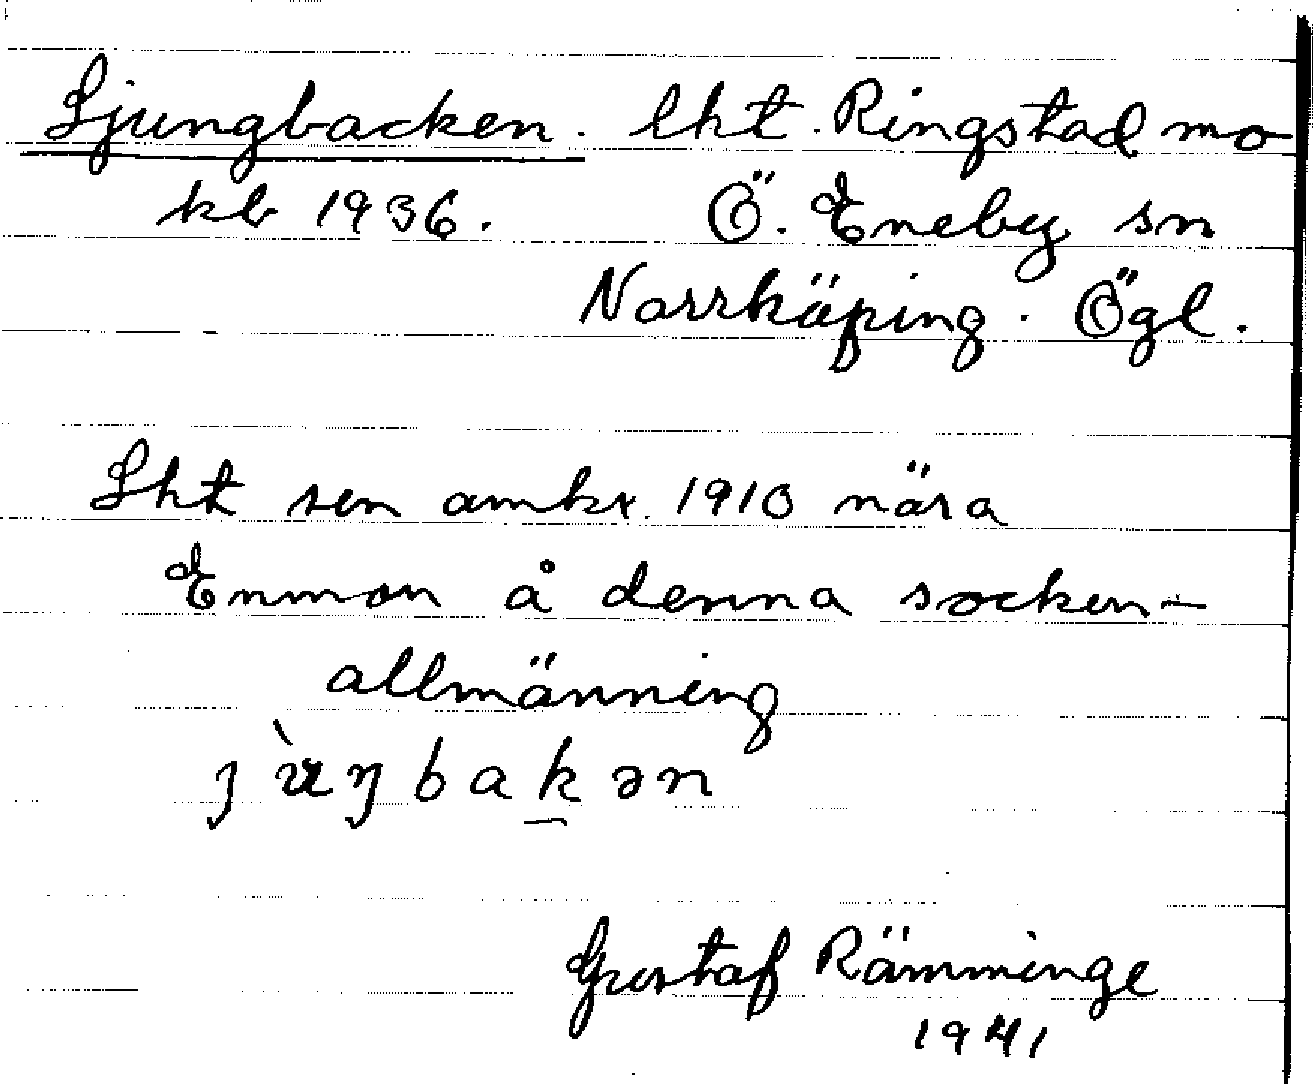 Ljungbacken. lht. Ringstad mo
kb 1936. Ö. Eneby sn
Norrköping. Ögl.
Lht sen omkr. 1910 nära
Enmon å denna socken-
allmänning
ȷ̀uŋbakən
Gustaf Rämminge
1941